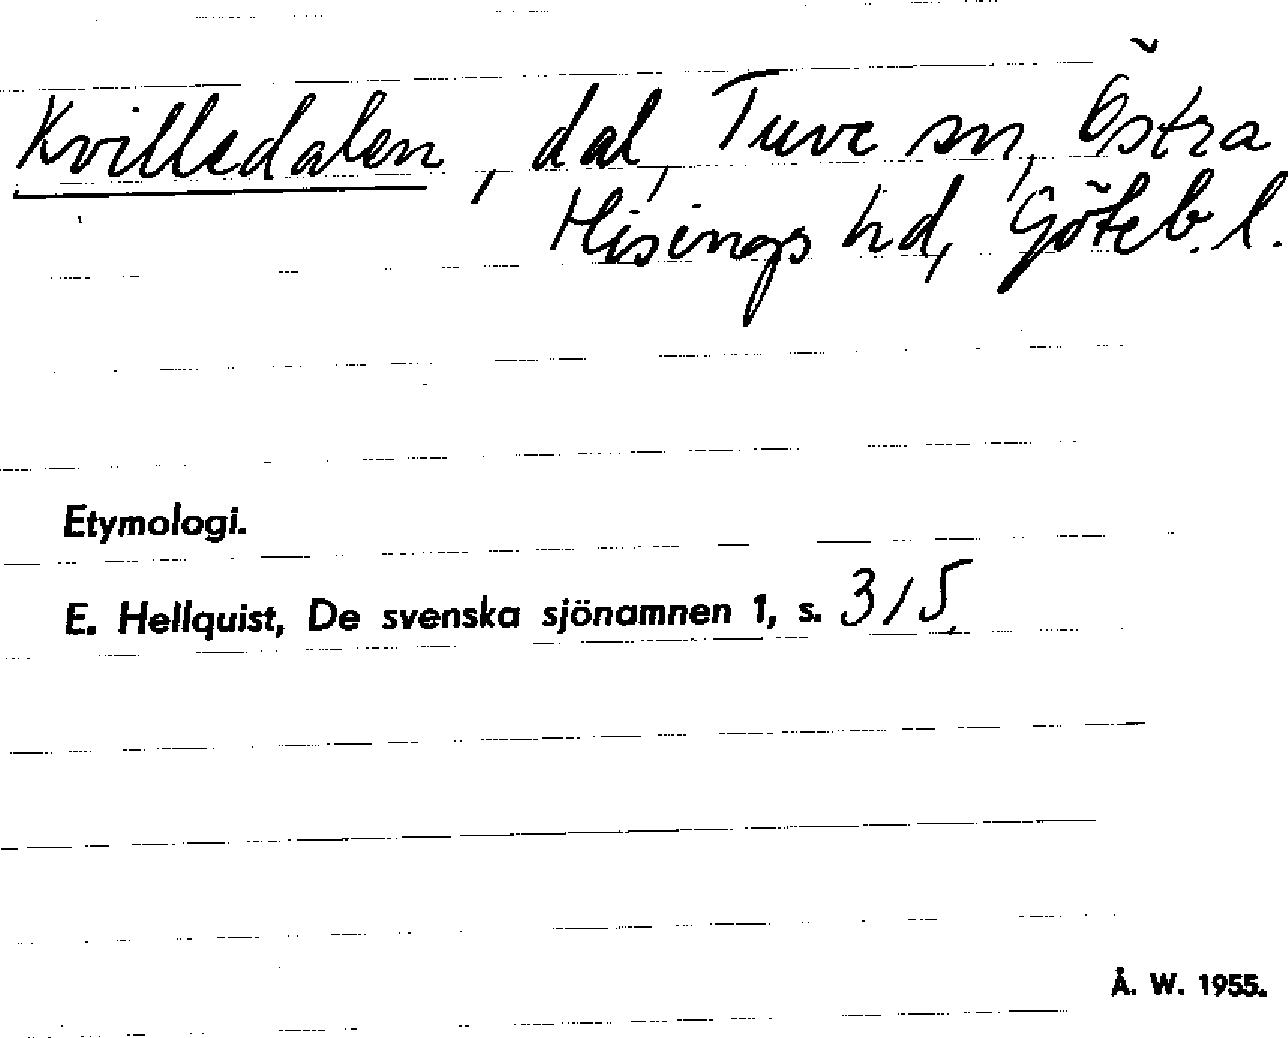 Kvilledalen, dal, Tuve sn, Östra
Hisings hd, Göteb. l.
Etymologi.
E. Hellquist, De svenska sjönamnen 1, s. 315.
Å. W. 1955.